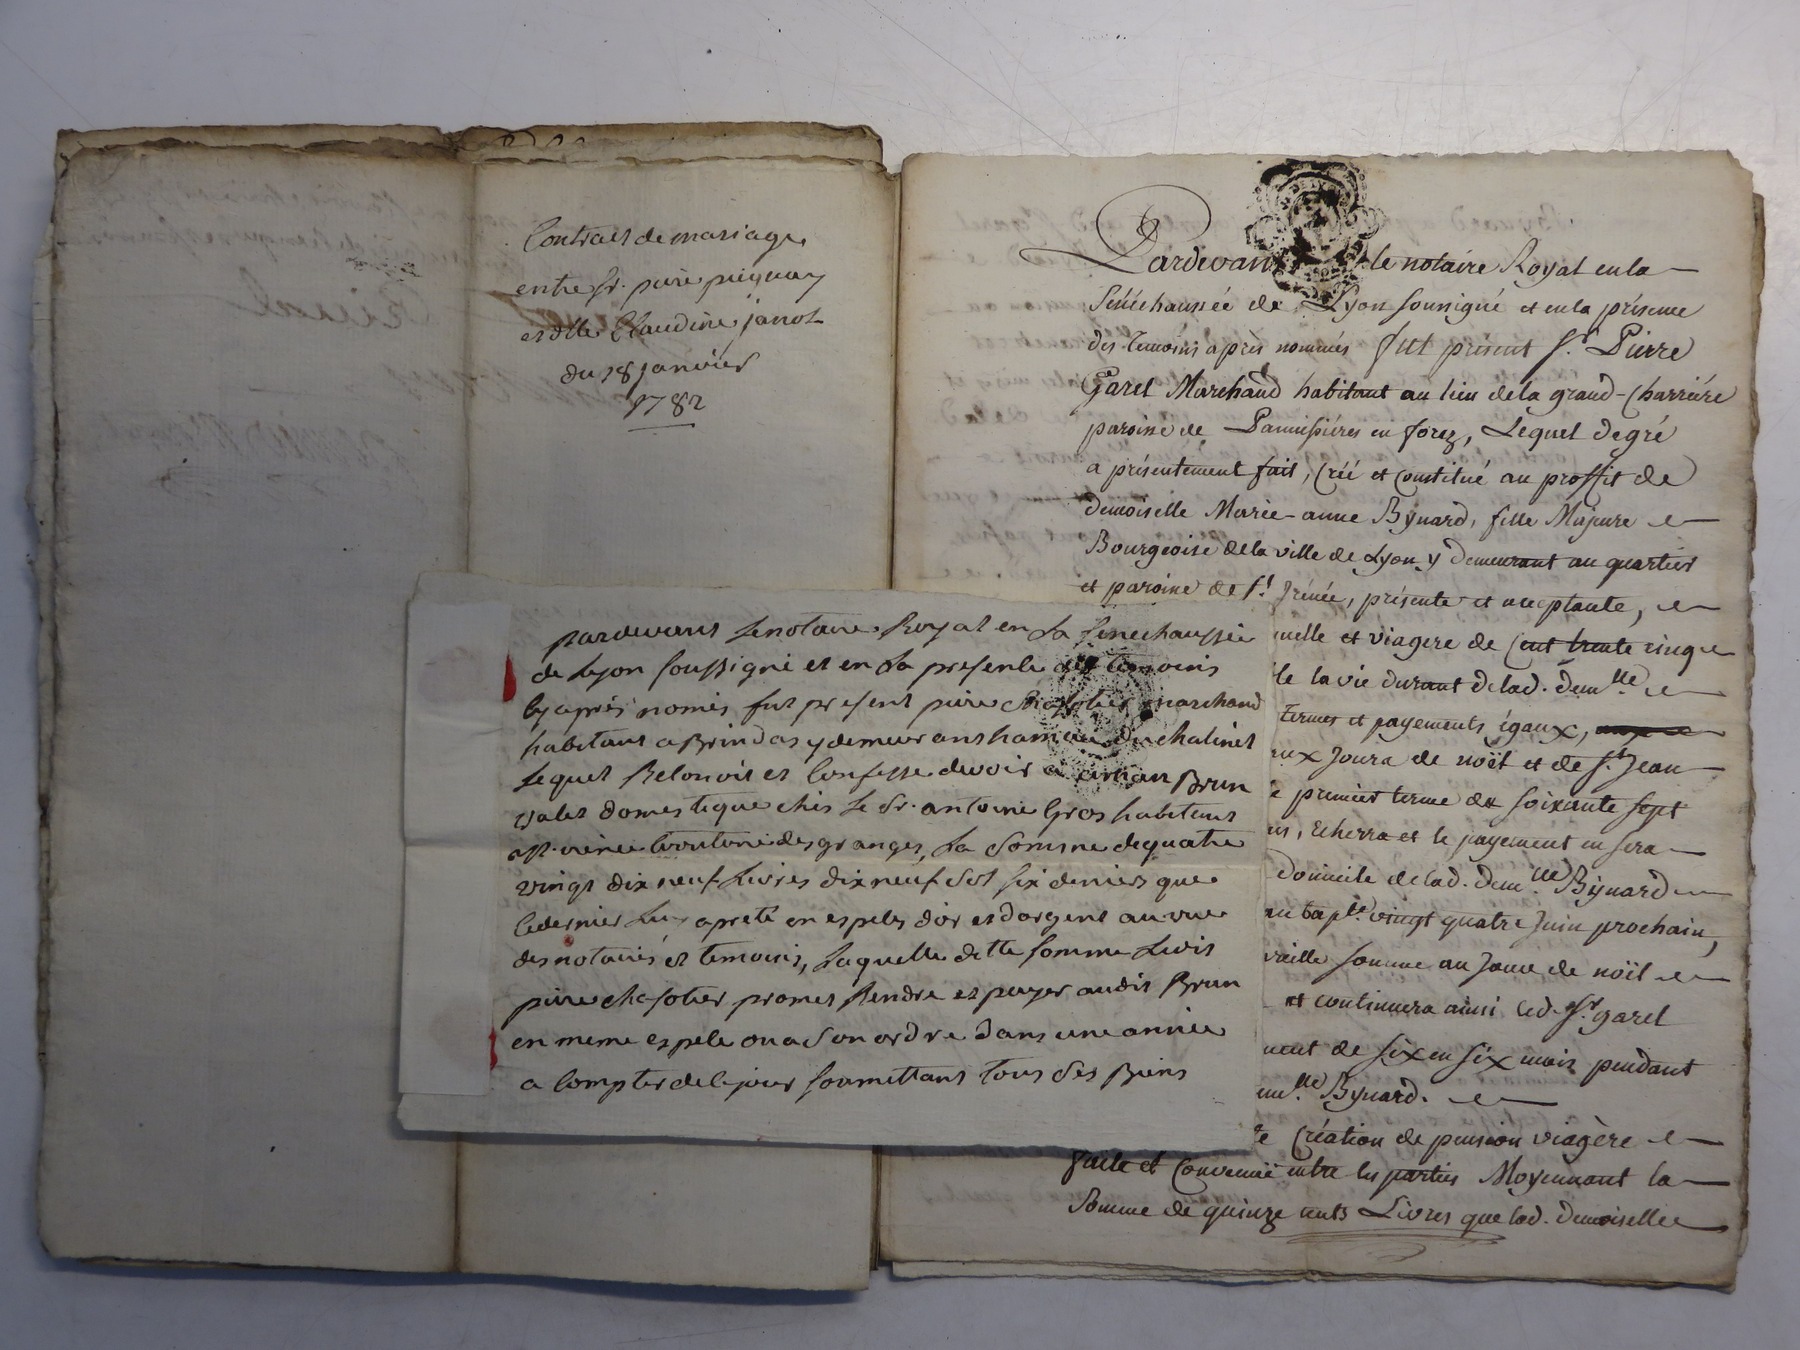 Contract de mariage
entre sr. piere piegnay
et dlle Claudine janot
du 18 janvier
1782
pardevant le notaire Royal en La senechaussée
de Lyon soussigné et en La presente des temoins
cy aprés només fut present piere marchand
habitant a Brindas y demeurant hameau du chalinet
Lequel Reconoit et Confesse devoir a Brun
valet domestique chés Le Sr. antoine Gros habitant
a st. irenée des granges, La Somme de quatre
vingt dix neuf Livres dix neuf sol six deniers que
ledernier Luy a preté en espeles d'or et d'argent au vue
des notaires et temoins, Laquelle ditte somme Ledit
piere chasotier promet Rendre et payer audit Brun
en meme espele ou a Son ordre dans une année
a Compter de ce jour soumettant tous Ses Biens
Pardevant le notaire Royal en la
Sénéchaussée de Lyon soussigné et en la présence
des temoins après nommés fut présent Sr. Pierre
Garel Marchand habitant au lieu de la grand-Charriére
paroisse de Pannissiéres en forez, Lequel de gré
a présentement fait, Créé et Constitué au proffit de
demoiselle Marie-anne Bynard, fille Majeure
Bourgeoise de la ville de Lyon y demeurant au quartier
et paroisse de St. Irénée, présente et acceptante,
nuelle et viagere de Cent trente cinq
le la vie durant de lad. demlle
termes et payements égaux,
aux Jours de noël et de St. Jean
e premier terme de soixante sept
us, Echerra et le payement en sera
domicile de lad. demlle Bynard
au bapte. vingt quatre Juin prochain,
reille somme au Jour de noël
et continuera ainsi led. Sr. garel
ment de six en six mois pendant
emlle Bynard.
te Création de pension viagère
faite et Convenüe entre les parties Moyennant la
Somme de quinze cents Livres que lad. demoiselle